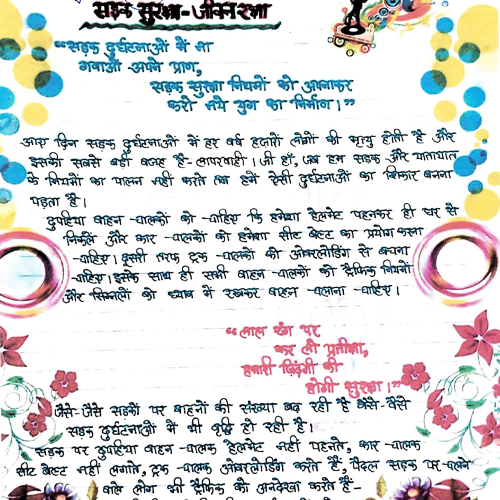 सड़क सुरक्षा-जीवन रक्षा
“सड़क दुर्घटनाओं में ना
गवाओं अपने प्राण,
सड़क सुरक्षा नियमों को अपनाकर
करो नये युग का निर्माण।”
आए दिन सड़क दुर्घटनाओं में हर वर्ष हजारों लोगों की मृत्यु होती है और
इसकी सबसे बड़ी वजह है- लापरवाही। जी हाँ, जब हम सड़क और यातायात
के नियमों का पालन नहीं करते तब हमें ऐसी दुर्घटनाओं का शिकार बनना
पड़ता है।
दुपहिया वाहन-चालकों को चाहिए कि हमेशा हेलमेट पहनकर ही घर से
निकलें और कार-चालकों को हमेशा सीट बेल्ट का प्रयोग करना
चाहिए। दूसरी तरफ ट्रक-चालकों को ओवरलोडिंग से बचना
चाहिए। इसके साथ ही सभी वाहन-चालकों को ट्रैफिक नियमों
और सिग्नलों को ध्यान में रखकर वाहन चलाना चाहिए।
“लाल रंग पर
कर लो प्रतीक्षा,
हमारी जिंदगी की
होगी सुरक्षा।”
जैसे-जैसे सड़कों पर वाहनों की संख्या बढ़ रही है वैसे-वैसे
सड़क दुर्घटनाओं में भी वृद्धि हो रही है।
सड़क पर दुपहिया वाहन-चालक हेलमेट नहीं पहनते, कार-चालक
सीट बेल्ट नहीं लगाते, ट्रक-चालक ओवरलोडिंग करते हैं, पैदल सड़क पर चलने
वाले लोग भी ट्रैफिक को अनदेखा करते हैं-